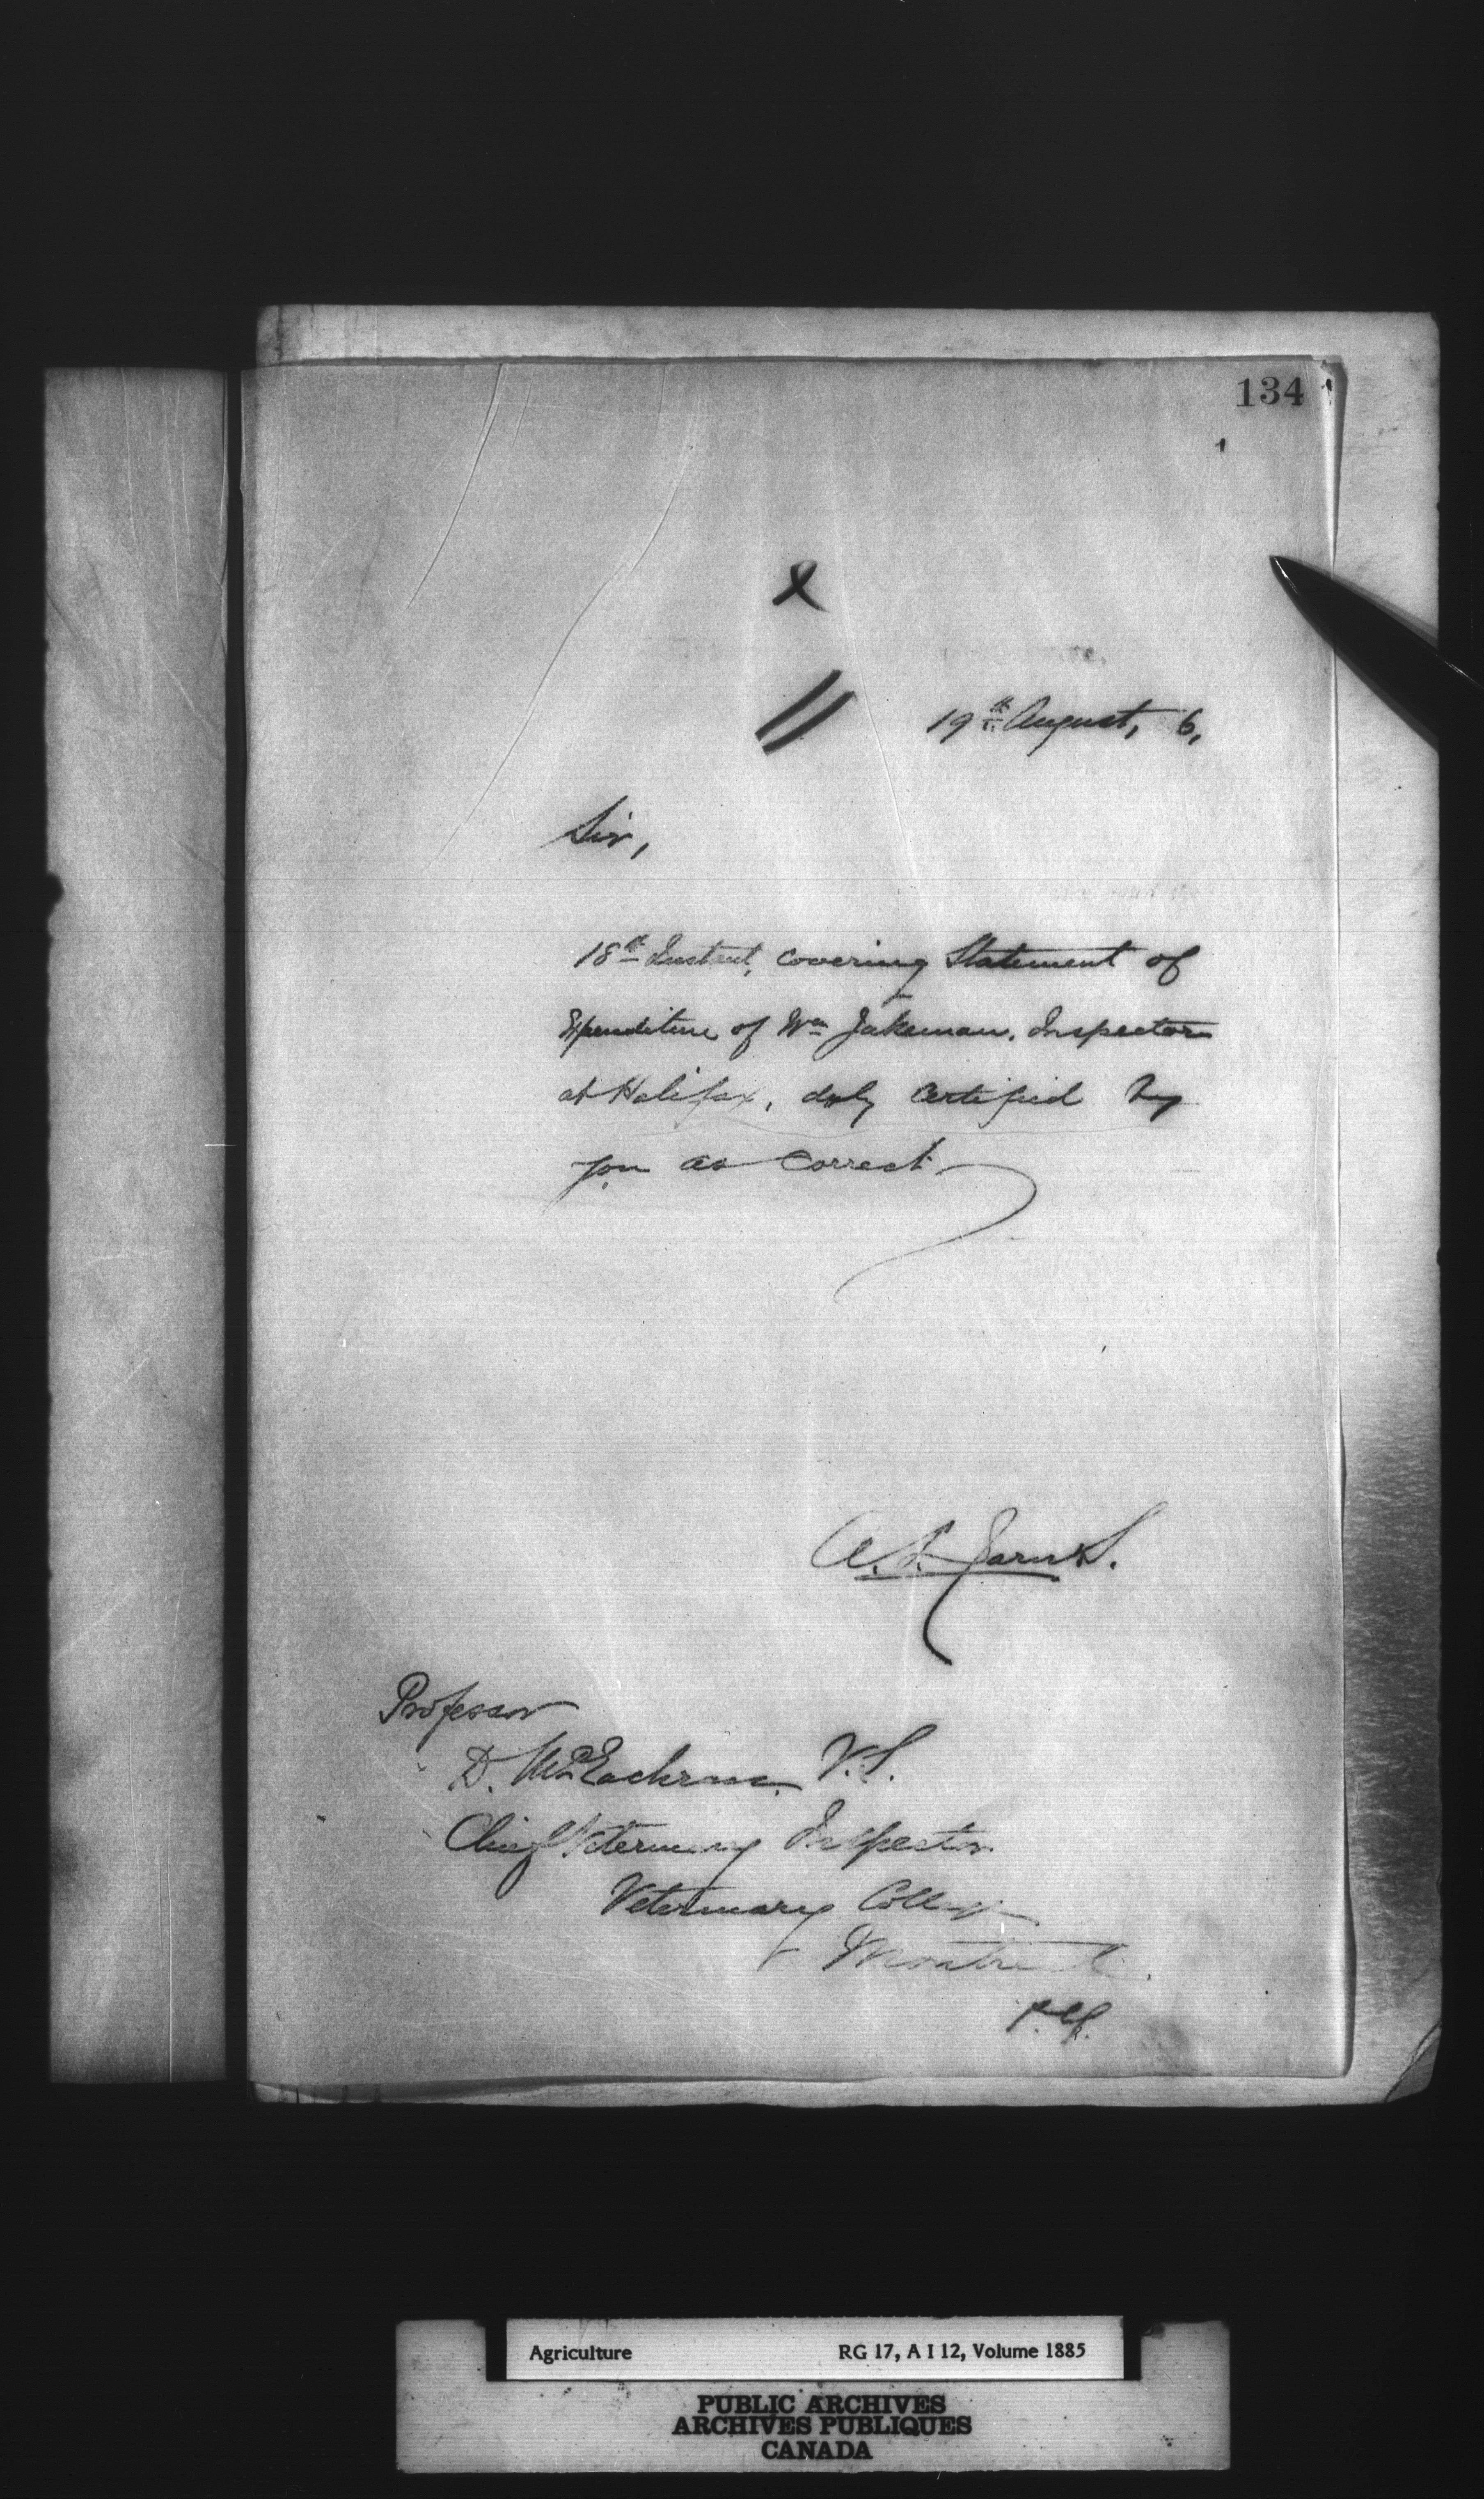 134
x
//
19th August, 6,
Sir,
18th Instant, covering Statement of
Expenditure of Wm Jakeman, Inspector
at Halifax, duly certified by
you as correct
Professor
D. McEachran, V.S.
Chief Veterinary Inspector
Veterinary College
Montreal
Agriculture RG 17, A I 12, Volume 1885
PUBLIC ARCHIVES
ARCHIVES PUBLIQUES
CANADA